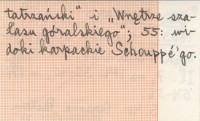 tatrzański" i „Wnętrze sza-
łasu góralskiego"; 55: wi-
doki karpackie Schouppé'go.